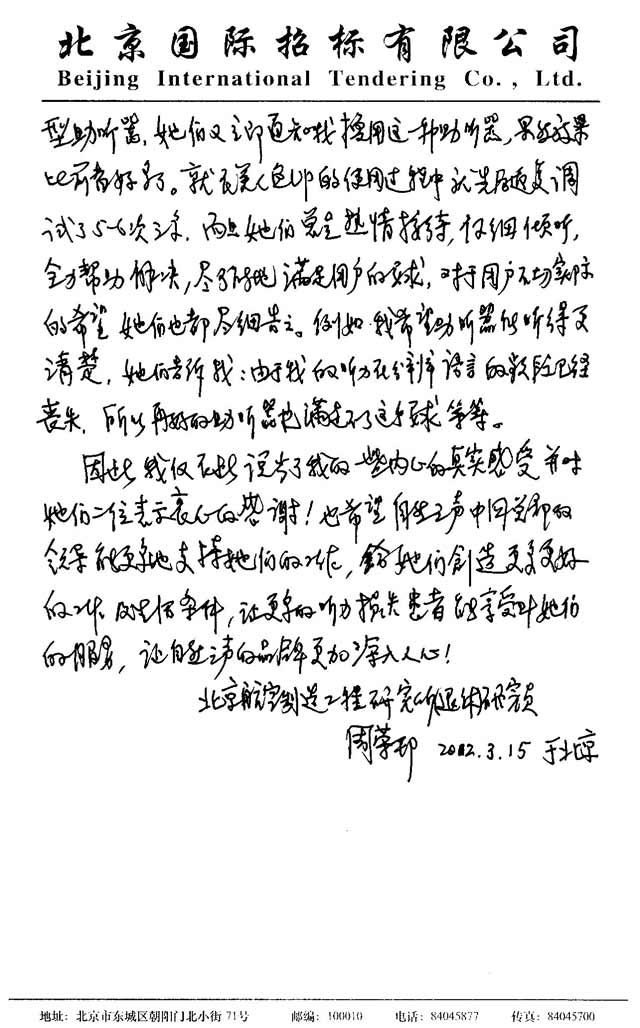 北京国际招标有限公司
Beijing International Tendering Co., Ltd.
型助听器，她们又立即通知我换用这一种助听器，果然效果
比前者好多了。就在这 的使用过程中就先后反复调
试了5-6次之多，而且她们总是热情接待，仔细倾听，
全力帮助解决，尽可能地满足用户的要求，对于用户不切实际
的希望她们也都尽细告之。例如：我希望助听器能听得更
清楚，她们告诉我：由于我的听力在分辨语言的频段已经
丧失，所以再好的助听器也满足不了这个要求等等。
因此我仅在此说出了我的一些内心的真实感受并对
她们二位表示衷心的感谢！也希望自然之声中国总部的
领导能更多地支持她们的工作，给她们创造更多更好
的工作及生活条件，让更多的听力损失患者能享受到她们
的服务，让自然之声的品牌更加深入人心！
北京航空制造工程研究所退休研究员
周荣邦 2002.3.15 于北京
地址：北京市东城区朝阳门北小街71号 邮编：100010 电话：84045877 传真：84045700